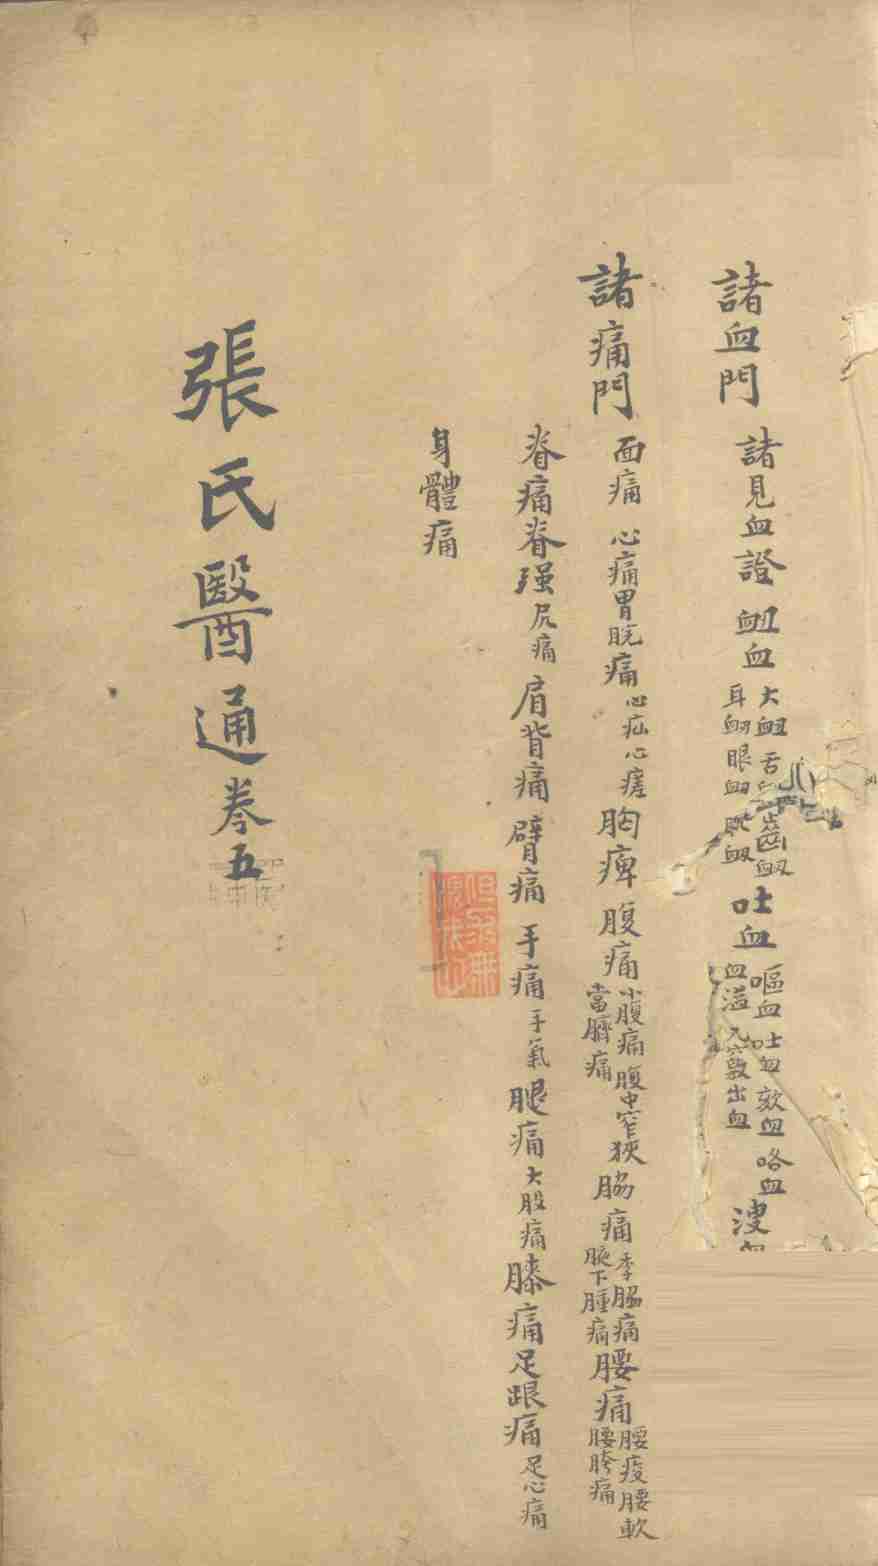 諸血門 諸見血證 衄血 大衄 舌 齒衄 耳衄 眼衄 吐血 嘔血 吐血 欬血 咯血 血溢 九竅出血 溲
諸痛門 面痛 心痛胃脘痛 心疝 心瘥 胸痺 腹痛 小腹痛 腹中窄狹 當臍痛 脇痛 季脇痛 腋下腫痛 腰痛 腰痠 腰軟 腰胯痛
脊痛脊强 尻痛 肩背痛 臂痛 手痛 手氣 腿痛 大股痛 膝痛 足跟痛 足心痛
身體痛
張氏醫通卷五